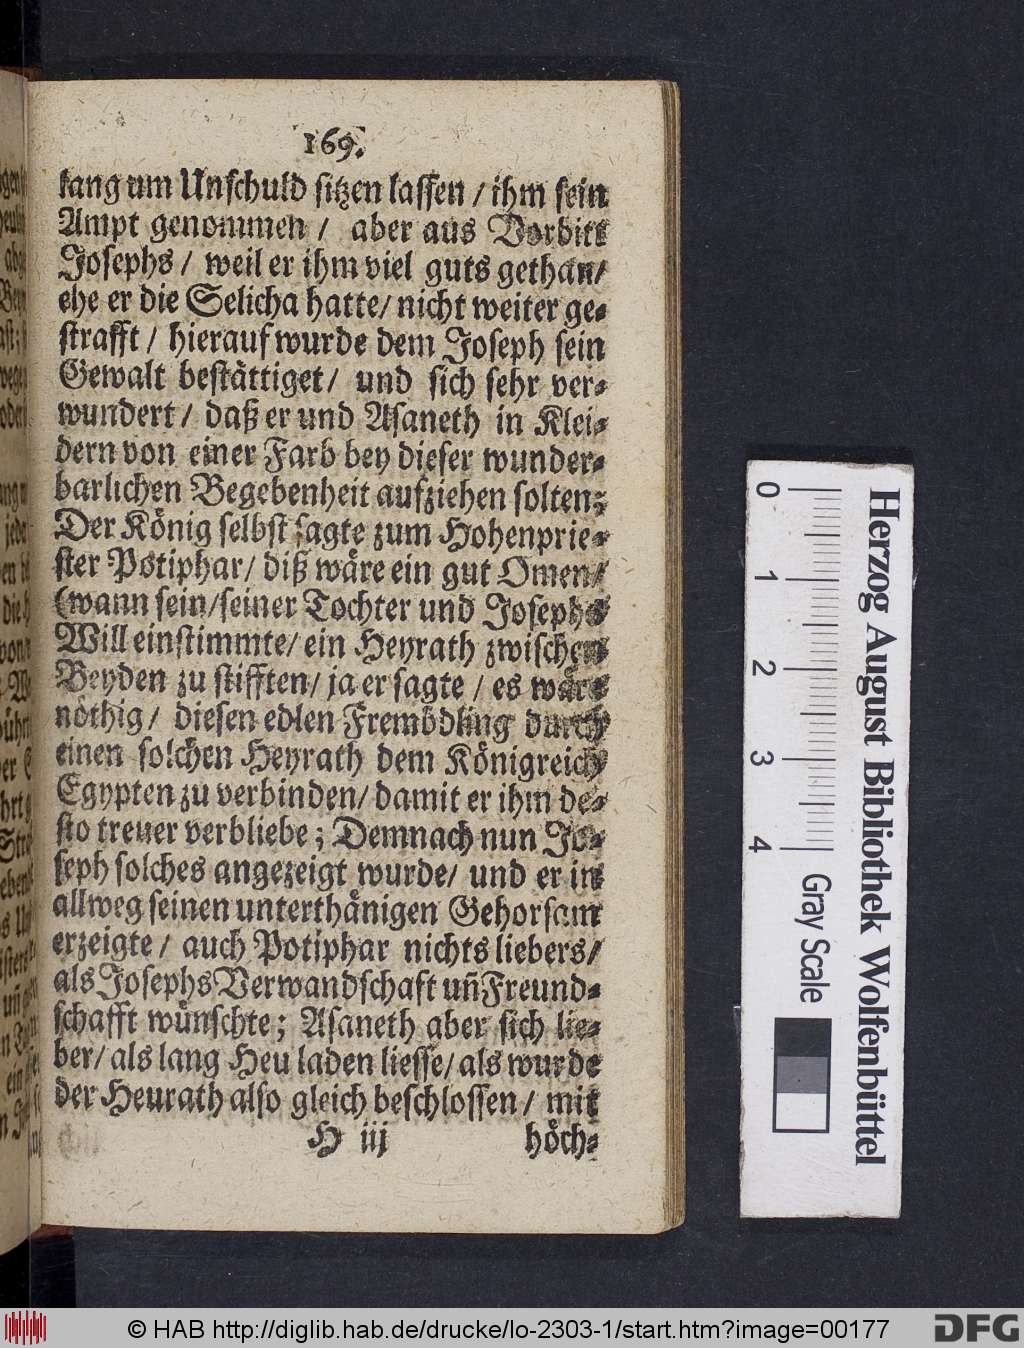 169.
lang um Unschuld sitzen lassen / ihm sein
Ampt genommen / aber aus Vorbitt
Josephs / weil er ihm viel guts gethan/
ehe er die Selicha hatte/ nicht weiter ge-
strafft / hierauf wurde dem Joseph sein
Gewalt bestättiget/ und sich sehr ver-
wundert / daß er und Asaneth in Klei-
dern von einer Farb bey dieser wunder-
barlichen Begebenheit aufziehen solten;
Der König selbst sagte zum Hohenprie-
ster Potiphar/ diß wäre ein gut Omen/
(wann sein/seiner Tochter und Josephs
Will einstimmte/ ein Heyrath zwischen
Beyden zu stifften/ ja er sagte / es wäre
nöthig / diesen edlen Frembdling durch
einen solchen Heyrath dem Königreich
Egypten zu verbinden/ damit er ihm de-
sto treuer verbliebe; Demnach nun Jo-
seph solches angezeigt wurde/ und er in
allweg seinen unterthänigen Gehorsam
erzeigte / auch Potiphar nichts liebers/
als Josephs Verwandschaft uñ Freund-
schafft wünschte; Asaneth aber sich lie-
ber/ als lang Heu laden liesse/ als wurde
der Heurath also gleich beschlossen/ mit
H iij höch-
Herzog August Bibliothek Wolfenbüttel
0 1 2 3 4
Gray Scale
© HAB http://diglib.hab.de/drucke/lo-2303-1/start.htm?image=00177
DFG